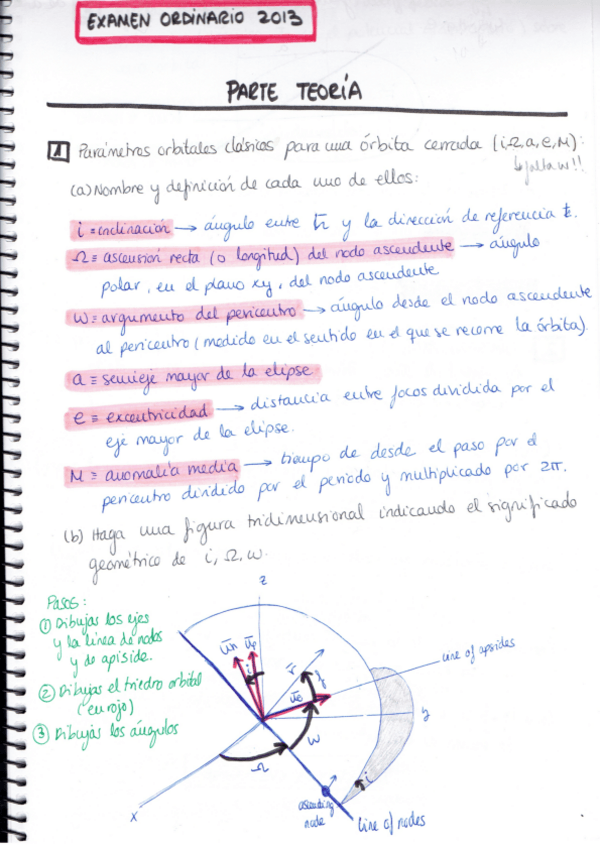 EXAMEN ORDINARIO 2013
PARTE TEORÍA
1 Parámetros orbitales clásicos para una órbita cerrada (i,Ω,a,e,M):
↳ falta w!!
(a) Nombre y definición de cada uno de ellos:
i ≡ inclinación → ángulo entre h̄ y la dirección de referencia k̄.
Ω ≡ ascensión recta (o longitud) del nodo ascendente → ángulo
polar, en el plano xy, del nodo ascendente
w ≡ argumento del pericentro → ángulo desde el nodo ascendente
al pericentro (medido en el sentido en el que se recorre la órbita).
a ≡ semieje mayor de la elipse
e ≡ excentricidad → distancia entre focos dividida por el
eje mayor de la elipse.
M ≡ anomalía media → tiempo de desde el paso por el
pericentro dividido por el periodo y multiplicado por 2π.
(b) Haga una figura tridimensional indicando el significado
geométrico de i, Ω, w.
Pasos:
① Dibujas los ejes
y la línea de nodos
y de apside.
② Dibujas el triedro orbital
(en rojo)
③ Dibujas los ángulos
z
i
r̄
line of apsides
y
w
Ω
i
x
ascending
node
line of nodes